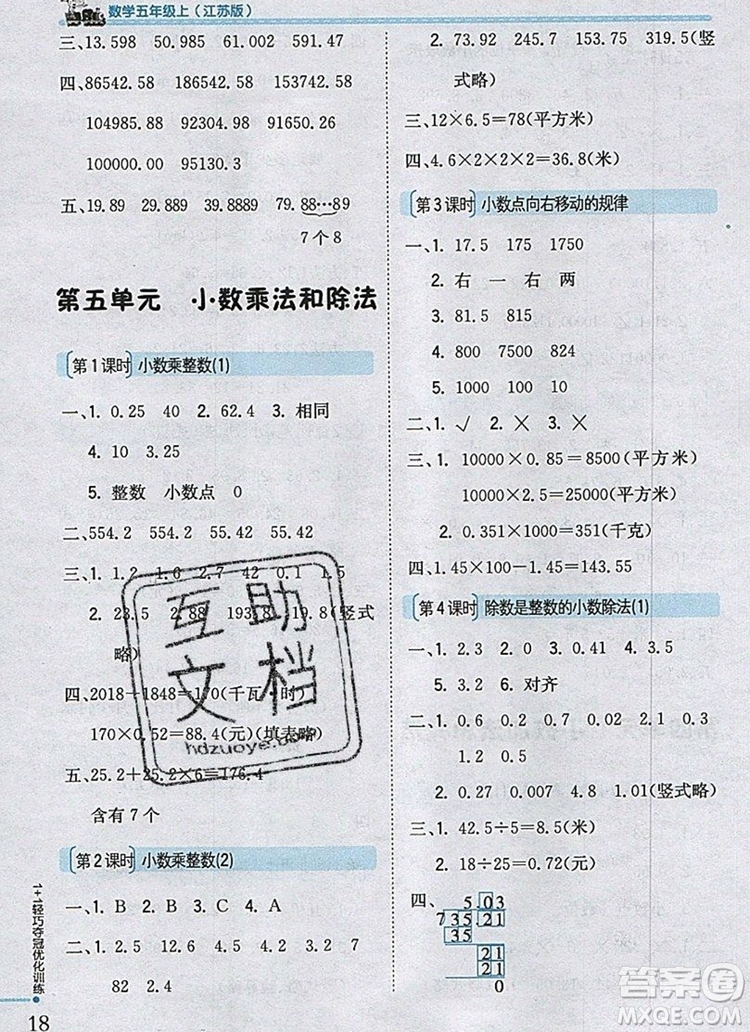 数学五年级上（江苏版）
三、13.598 50.951 6.032 591.47
四、86542.58 186542.58 153742.58
104985.58 92304.58 91650.58
100000.00 95130.3
五、19.89 29.889 39.8889 79.88…89
7个8
第五单元 小数乘法和除法
第1课时 小数乘整数(1)
一、1. 0.25 40 2. 62.4 3. 相同
4. 10 3.25
5. 整数 小数点 0
二、554.2 554.2 55.42 55.42
三、1. 1.2 1.6 4.2 42 0.1 1.5
2. 23.5 2.88 193.8 19.8(竖式
略)
四、2018-1848=170(千瓦·时)
170×0.52=88.4(元)(填表略)
五、25.2+25.2×6=176.4
含有7个
第2课时 小数乘整数(2)
一、1. B 2. B 3. C 4. A
二、1. 2.5 12.6 4.5 4.2 12.4
82 2.4
2. 73.92 245.7 153.75 319.5(竖
式略)
三、12×6.5=78(平方米)
四、4.6×2×2×2=36.8(米)
第3课时 小数点向右移动的规律
一、1. 17.5 175 1750
2. 右 一 右 两
3. 81.5 815
4. 800 7500 824
5. 1000 100 10
二、1. √ 2. × 3. ×
三、1. 10000×0.85=8500(平方米)
10000×2.5=25000(平方米)
2. 0.351×1000=351(千克)
四、1.45×100-1.45=143.55
第4课时 除数是整数的小数除法(1)
一、1. 2.3 2. 0 3. 0.41 4. 3.5
5. 3.2 6. 对齐
二、1. 0.6 0.7 0.9 0.02 2.1
1.2 0.5
2. 0.27 0.007 4.8 1.01(竖式略)
三、1. 42.5÷5=8.5(米)
2. 18÷25=0.72(元)
四、
5.03
735.21
35
21
21
0
1+1轻巧夺冠优化训练
18
互助
文档
hdzuoye.com
答案圈
MXQE.COM